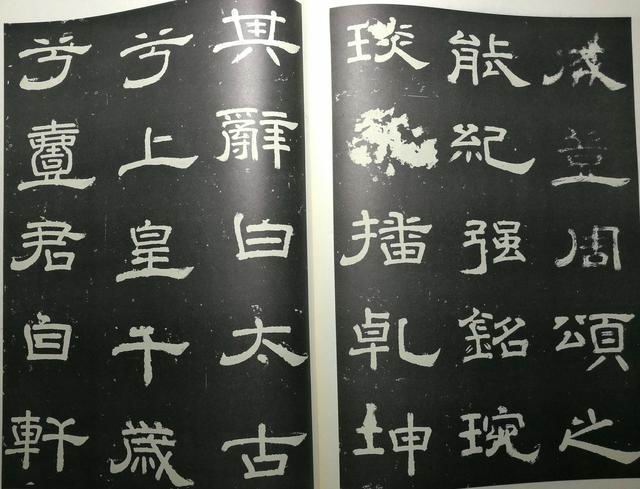 豈周頌之
能紀强銘琬
琰播乹坤
其辭曰太古
兮上皇千歲
兮壹君自軒